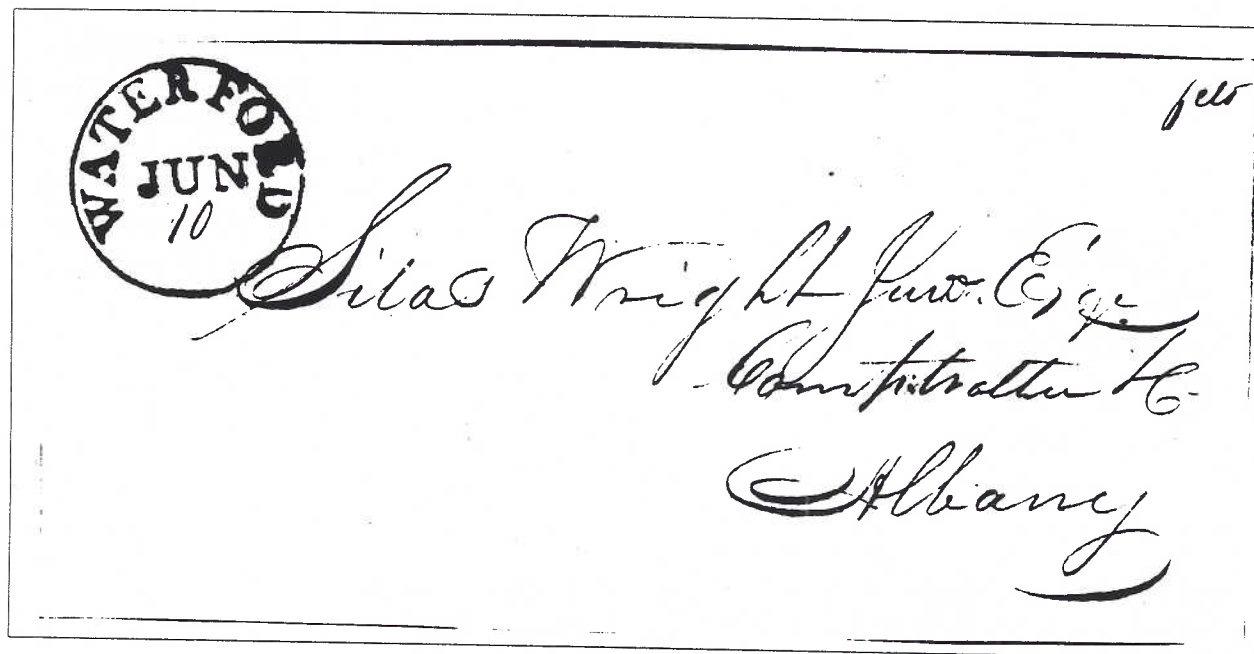 WATERFORD
JUN
10
Silas Wright Junr. Esqr.
Comptroller &c.
Albany